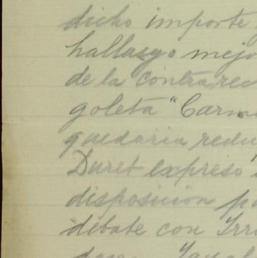 dicho importe
hallazgo mejo
de la contra, rec
goleta "Carm
quedaria redu
Duret expresó
disposicion p
debate con Irr